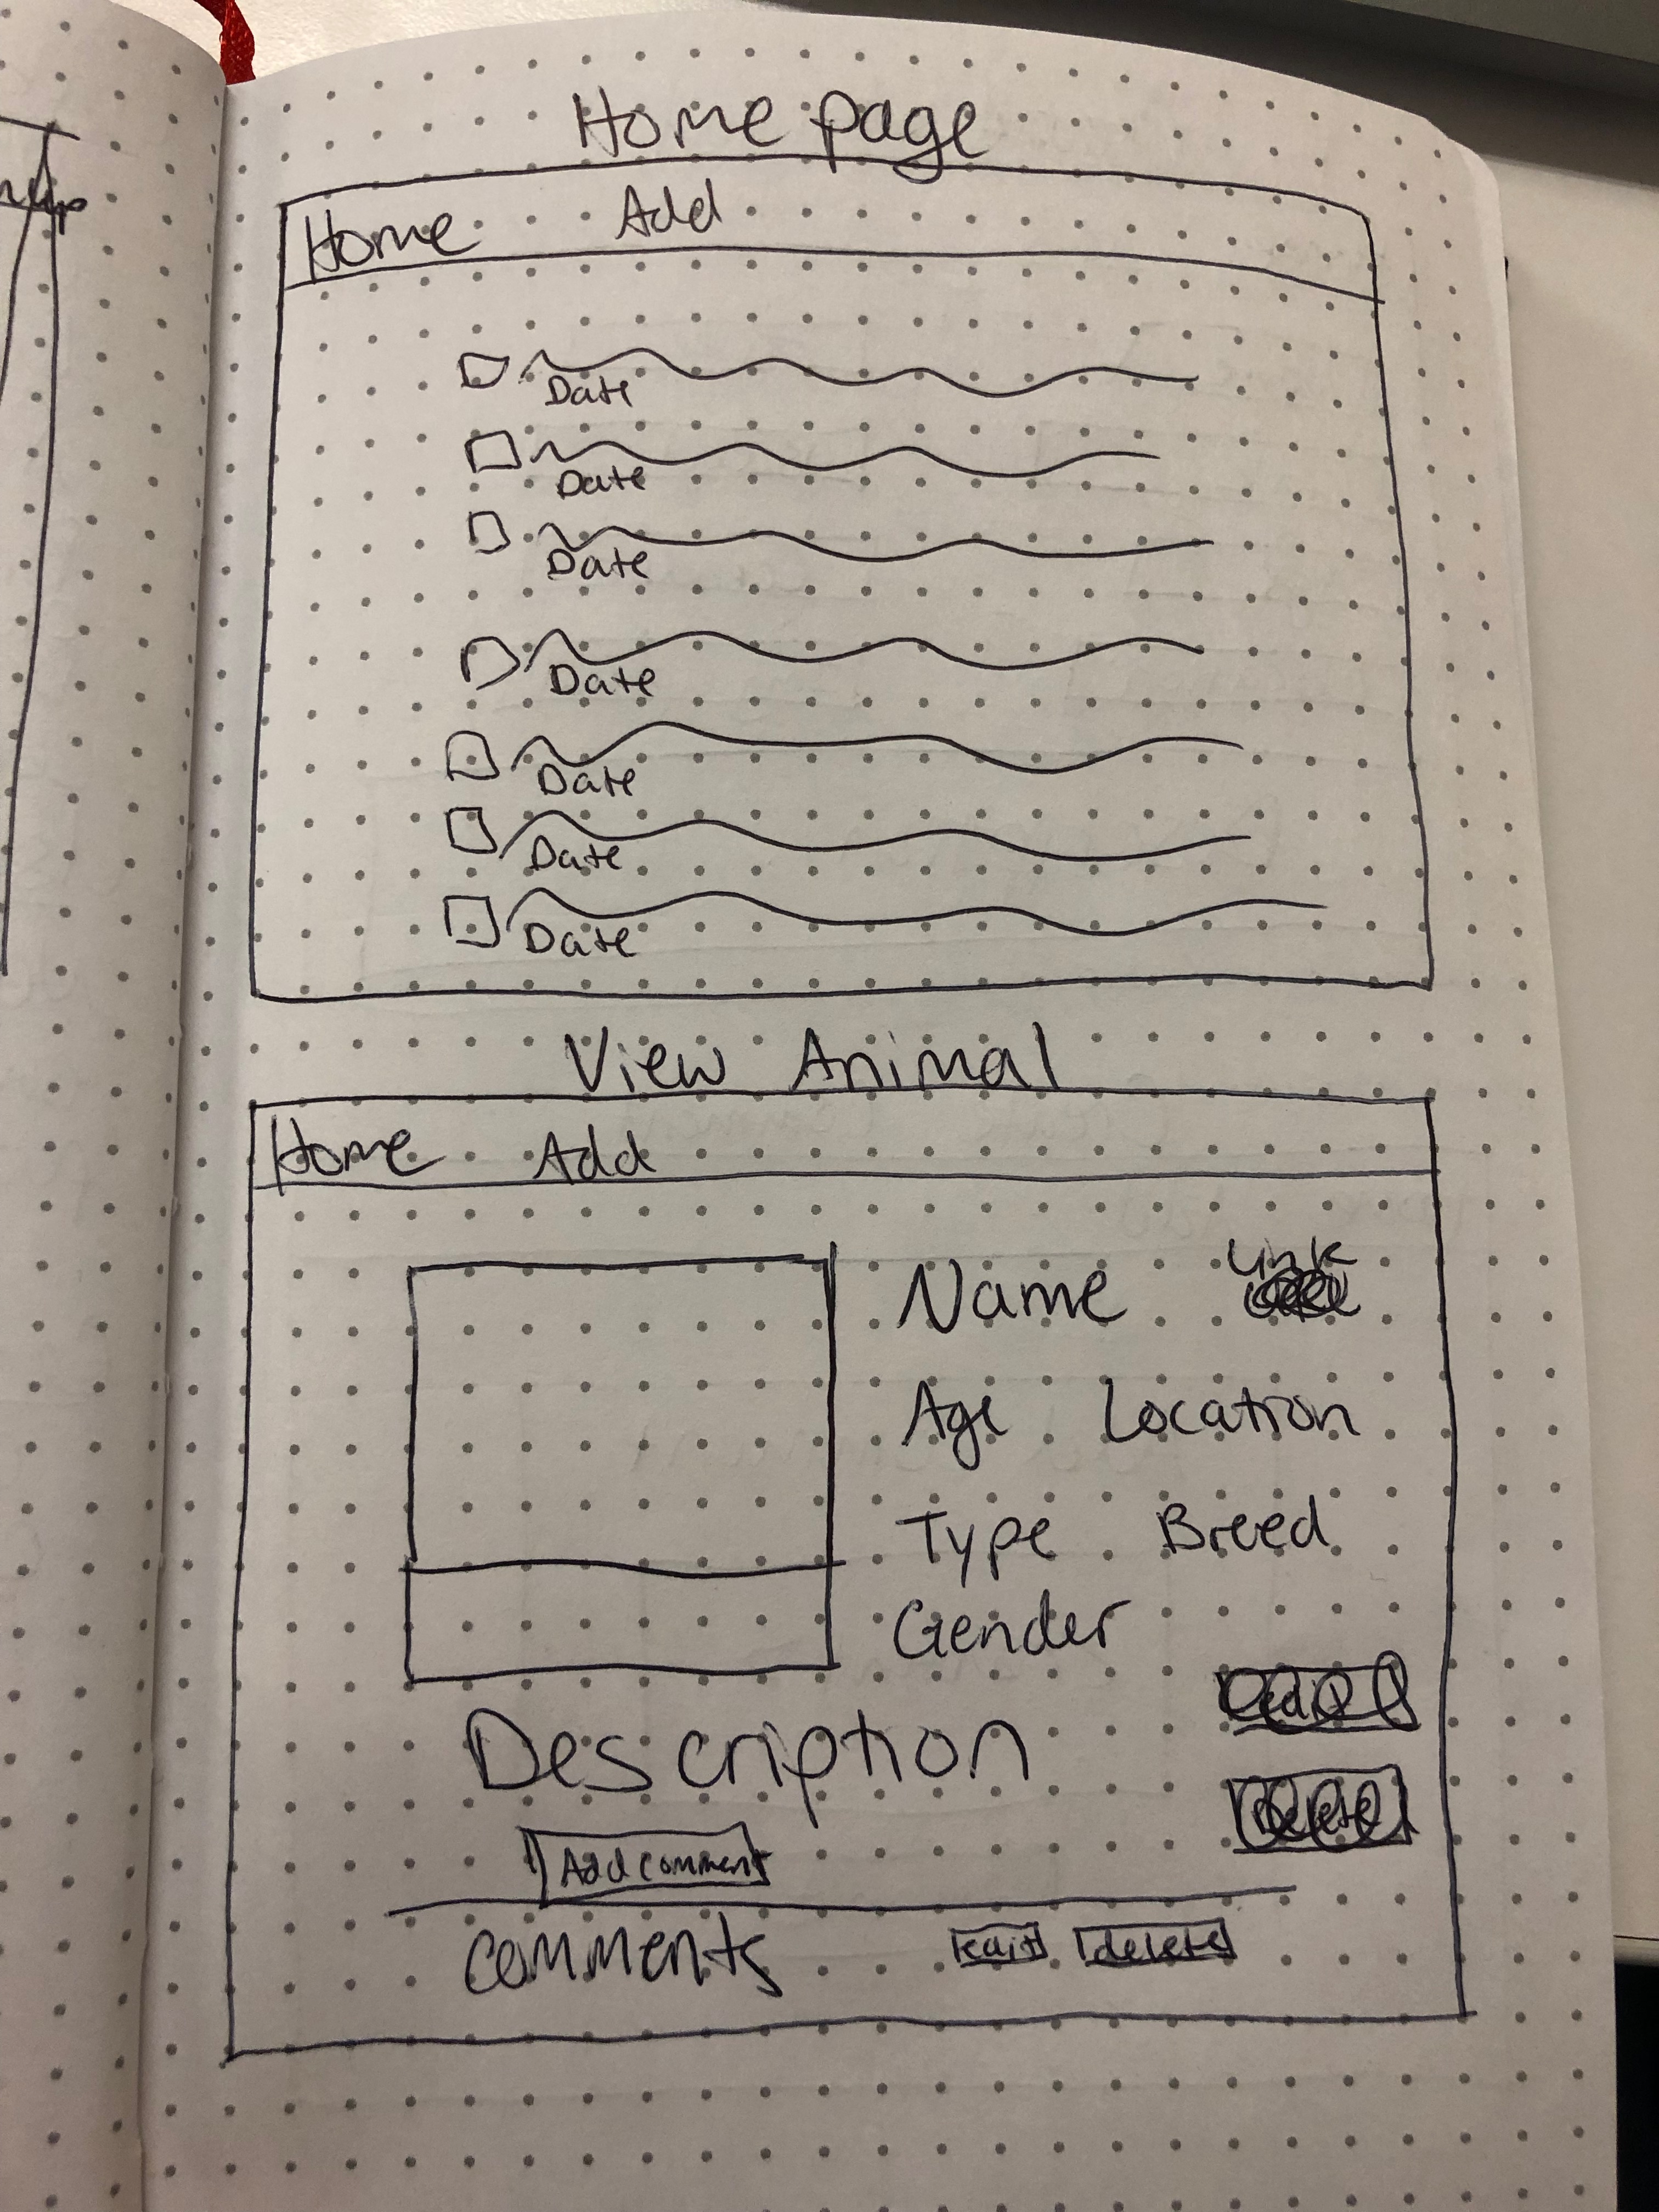 Home page
Home Add
Date
Date
Date
Date
Date
Date
Date
View Animal
Home Add
Name Link
Age Location
Type Breed
Gender
Description
Delete
Add comment
comments edit delete